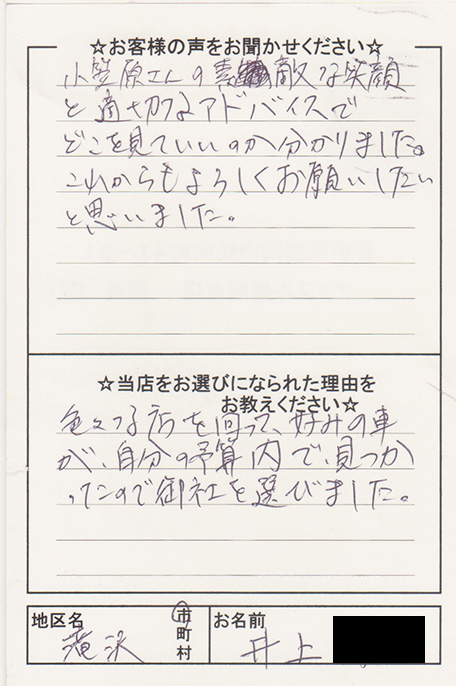 ☆お客様の声をお聞かせください☆
小笠原さんの素敵な笑顔
と適切なアドバイスで
どこを見ていいのか分かりました。
これからもよろしくお願いしたい
と思いました。
☆当店をお選びになられた理由を
お教えください☆
色々な店を回って、好みの車
が、自分の予算内で、見つか
ったので御社を選びました。
地区名 滝沢 市町村 お名前 井上